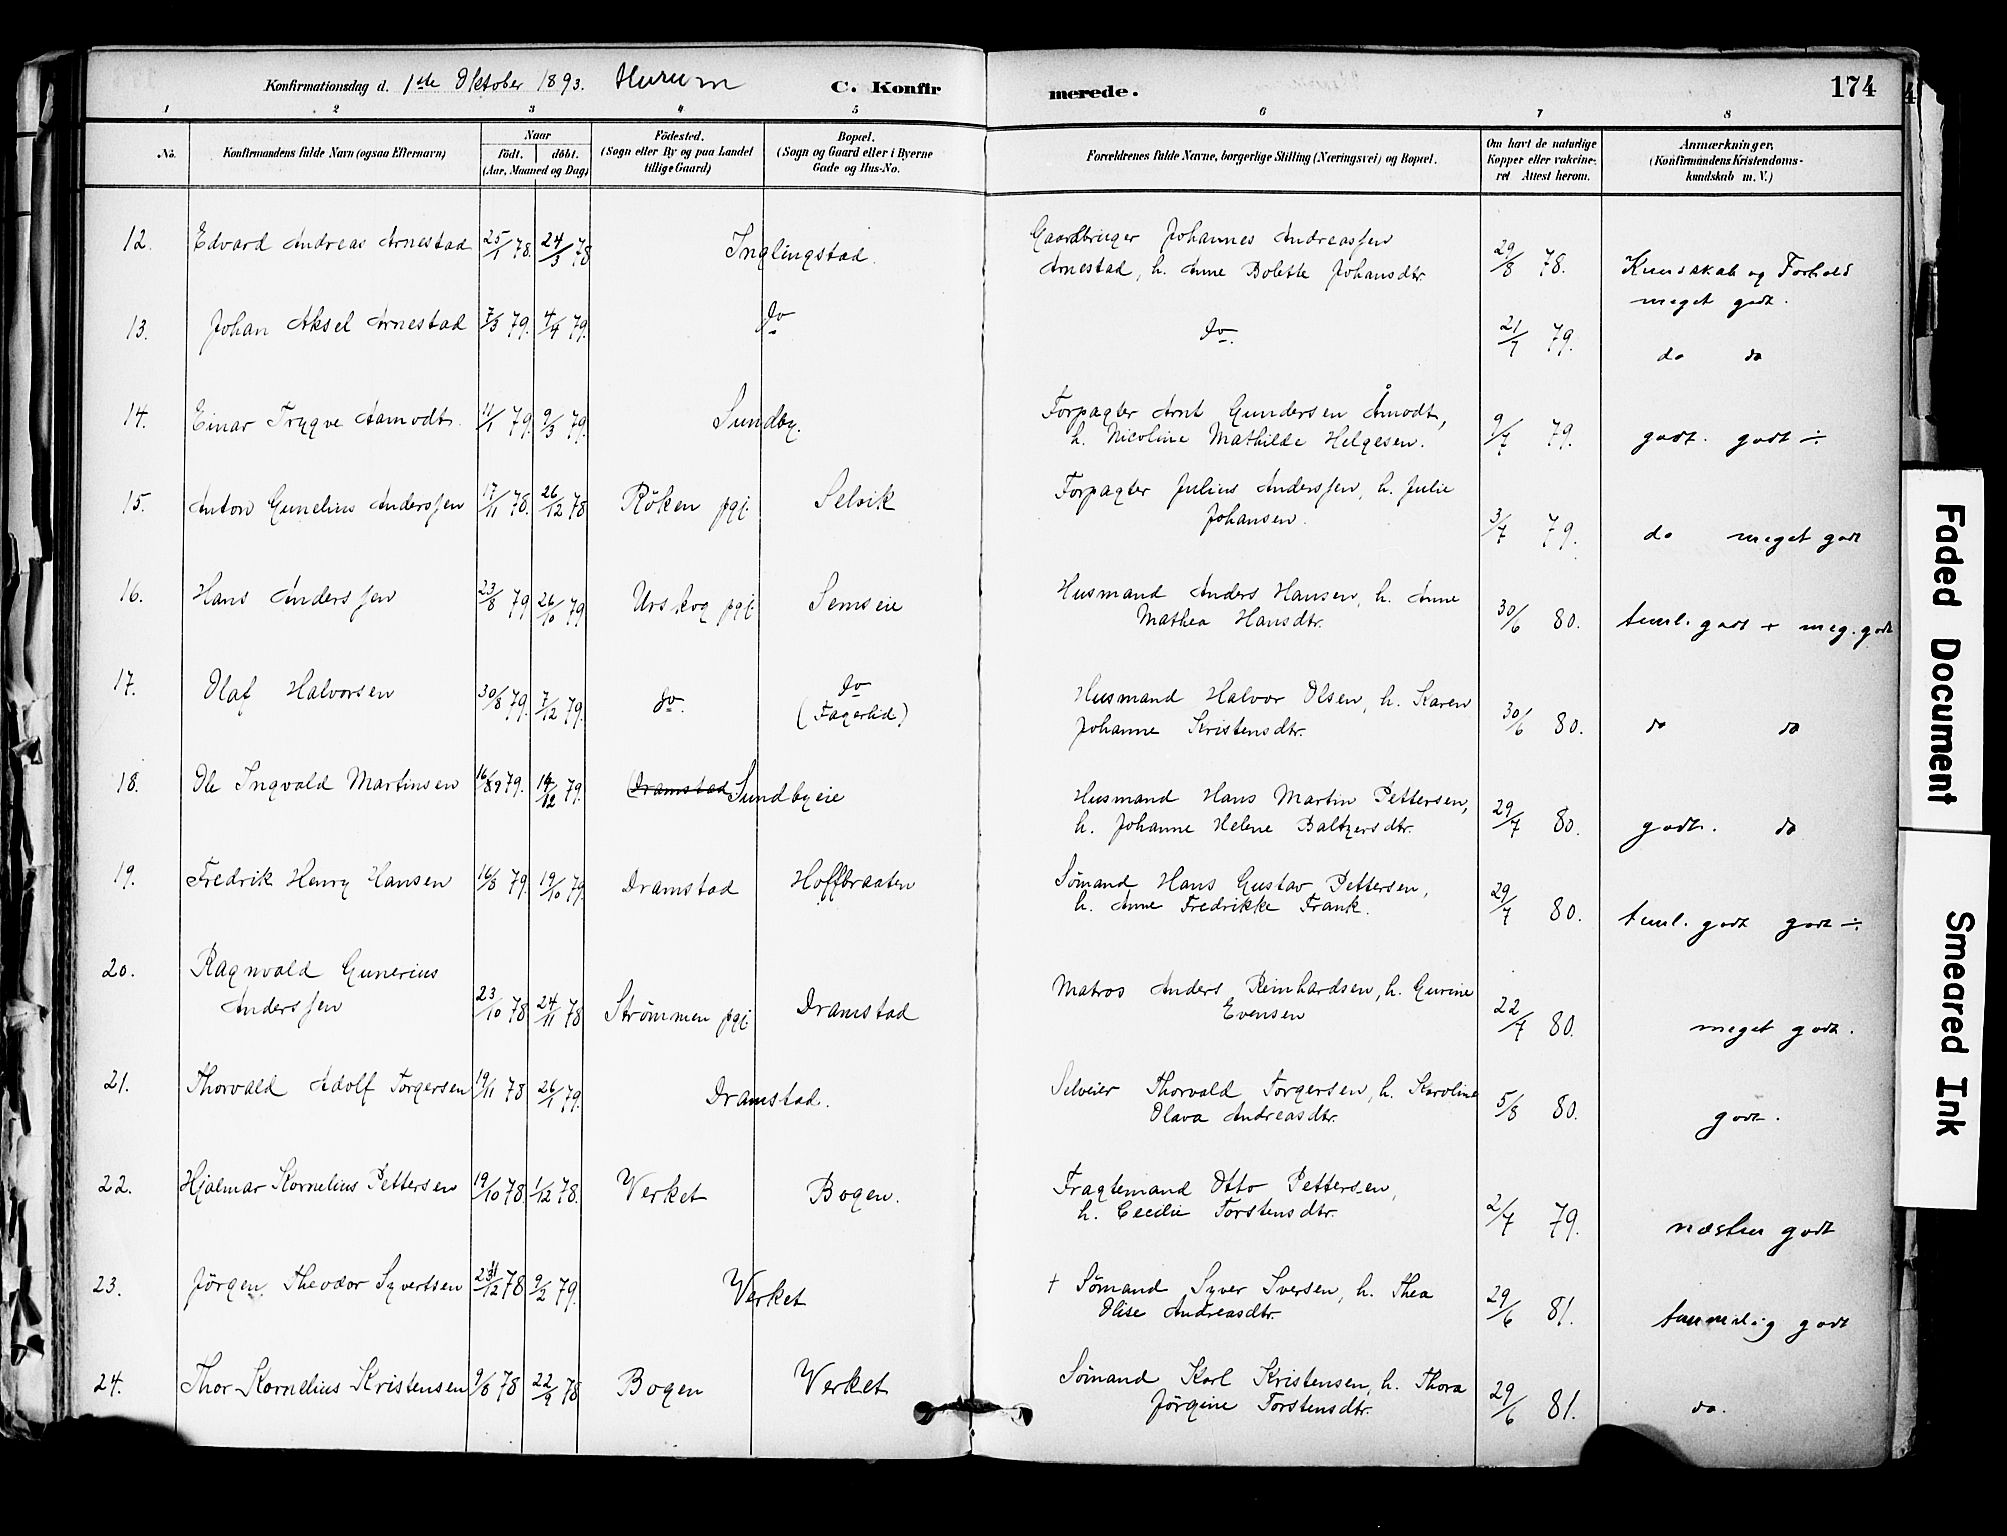 Konfirmationsdag d. 1ste Oktober 1893. Hurum C. Konfirmerede. 174
1 2 3 4 5 6 7 8
No. Konfirmandens fulde Navn (ogsaa Efternavn) Naar født. døbt. (Aar, Maaned og Dag) Fødested. (Sogn eller By og paa Landet tillige Gaard) Bopæl. (Sogn og Gaard eller i Byerne Gade og Hus-No. Forældrenes fulde Navne, borgerlige Stilling (Næringsvei) og Bopæl. Om havt de naturlige Kopper eller vakcineret Attest herom. Anmærkninger. (Konfirmandens Kristendomskundskab m. V.)
12. Edvard Andreas Arnestad 25/1 78. 24/3 78 Inglingstad. Gaardbruger Johannes Andreassen
Arnestad, h. Anne Bolette Johansdtr. 29/8 78. Kundskab og Forhold
meget godt.
13. Johan Aksel Arnestad 7/3 79. 4/4 79. do do. 21/7 79. do do
14. Einar Trygve Aamodt. 11/1 79. 9/3 79. Sundby. Forpagter Arnt Gundersen Åmodt,
h. Nicoline Mathilde Helgesen. 9/7 79. godt. godt ÷
15. Anton Gunelius Anderssen 17/11 78. 26/12 78 Røken pgj. Selvik Forpagter Julius Anderssen, h. Julie
Johansen. 3/7 79. do meget godt
16. Hans Anderssen 23/8 79 26/10 79 Urskog pgj. Semseie Husmand Anders Hansen, h. Anne
Mathea Hansdtr. 30/6 80. teml. godt + meg. godt
17. Olaf Halvorsen 30/8 79. 7/12 79. do. do
(Fagerlid) Husmand Halvor Olsen, h. Karen
Johanne Kristensdtr. 30/6 80. do do
18. Ole Ingvald Martinsen 79. 14/12 79. (Dramstad Sundbyeie Husmand Hans Martin Pettersen,
h. Johanne Helene Baltzersdtr. 29/7 80. godt. do
19. Fredrik Henry Hansen 16/8 79 19/10 79. Dramstad Hoffbraaten Sømand Hans Gustav Pettersen,
h. Anne Fredrikke Frank. 29/7 80. teml. godt godt ÷
20. Ragnvald Gunerius
Anderssen 23/10 78 24/11 78 Strømmen pgj. Dramstad Matros Anders Reinhardsen, h. Gurine
Evensen 22/7 80. meget godt.
21. Thorvald Adolf Torgersen 19/11 78 26/1 79. Dramstad. Selveier Thorvald Torgersen, h. Karoline
Olava Andreasdtr. 5/8 80. godt.
22. Hjalmar Kornelius Pettersen 19/10 78 1/12 78. Verket Bogen. Fragtemand Otto Pettersen,
h. Cecilie Torstensdtr. 2/7 79. næsten godt
23. Jørgen Theodor Syvertsen 78 9/2 79. Verket † Sømand Syver Iversen, h. Thea
Olise Andreasdtr. 29/6 81. temmelig godt
24. Thor Kornelius Kristensen 9/8 78 22/9 78 Bogen Verket Sømand Karl Kristensen, h. Thora
Jørgine Torstensdtr. 29/6 81. do.
Faded Document
Smeared Ink